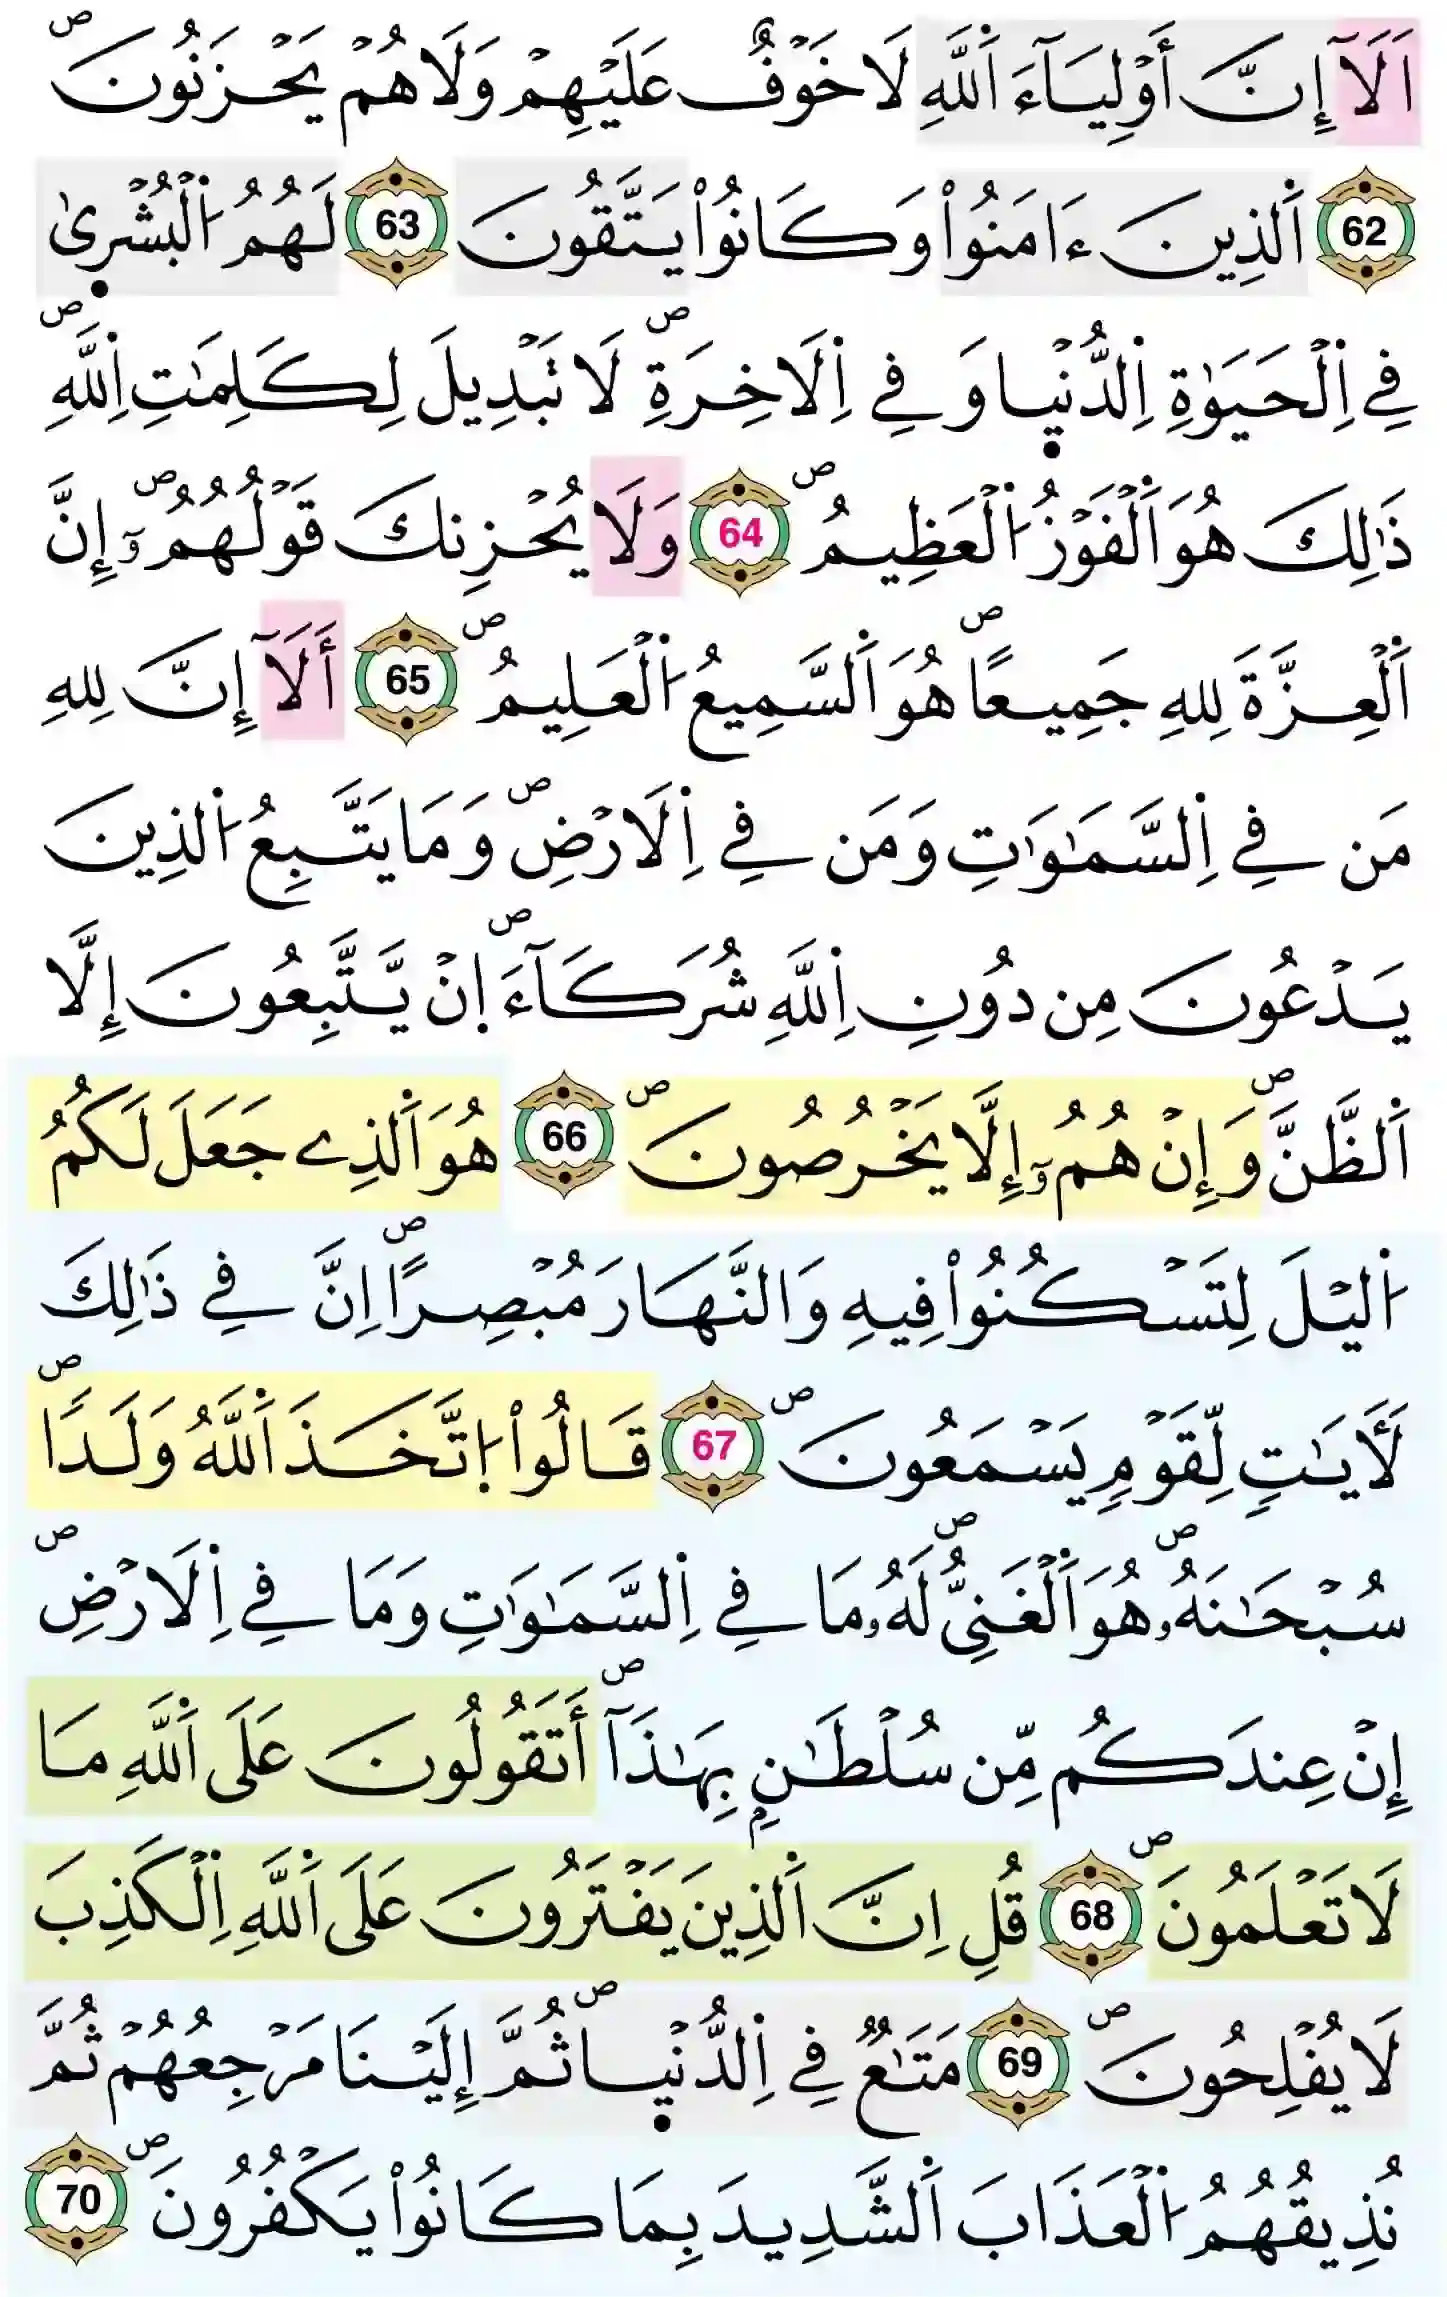 اَلَآ إِنَّ أَوْلِيَآءَ اَ۬للَّهِ لَا خَوْفٌ عَلَيْهِمْ وَلَا هُمْ يَحْزَنُونَۖ
62 اَ۬لذِينَ ءَامَنُواْ وَكَانُواْ يَتَّقُونَ 63 لَهُمُ اُ۬لْبُشْر۪ىٰ
فِي اِ۬لْحَيَوٰةِ اِ۬لدُّنْي۪ا وَفِي اِ۬لَاخِرَةِۖ لَا تَبْدِيلَ لِكَلِمَٰتِ اِ۬للَّهِۖ
ذَٰلِكَ هُوَ اَ۬لْفَوْزُ اُ۬لْعَظِيمُۖ 64 وَلَا يُحْزِنكَ قَوْلُهُمُۥٓۖ إِنَّ
اَ۬لْعِزَّةَ لِلهِ جَمِيعًاۖ هُوَ اَ۬لسَّمِيعُ اُ۬لْعَلِيمُۖ 65 أَلَآ إِنَّ لِلهِ
مَن فِي اِ۬لسَّمَٰوَٰتِ وَمَن فِي اِ۬لَارْضِۖ وَمَا يَتَّبِعُ اُ۬لذِينَ
يَدْعُونَ مِن دُونِ اِ۬للَّهِ شُرَكَآءَۖ اِنْ يَّتَّبِعُونَ إِلَّا
اَ۬لظَّنَّۖ وَإِنْ هُمُۥٓ إِلَّا يَخْرُصُونَۖ 66 هُوَ اَ۬لذِے جَعَلَ لَكُمُ
اُ۬ليْلَ لِتَسْكُنُواْ فِيهِ وَالنَّهَارَ مُبْصِرًاۖ اِنَّ فِي ذَٰلِكَ
لَأٓيَٰتٍ لِّقَوْمٍ يَسْمَعُونَۖ 67 قَالُواْ اُ۪تَّخَذَ اَ۬للَّهُ وَلَدًاۖ
سُبْحَٰنَهُۥۖ هُوَ اَ۬لْغَنِيُّۖ لَهُۥ مَا فِي اِ۬لسَّمَٰوَٰتِ وَمَا فِي اِ۬لَارْضِۖ
إِنْ عِندَكُم مِّن سُلْطَٰنِۢ بِهَٰذَآۖ أَتَقُولُونَ عَلَى اَ۬للَّهِ مَا
لَا تَعْلَمُونَۖ 68 قُلِ اِنَّ اَ۬لذِينَ يَفْتَرُونَ عَلَى اَ۬للَّهِ اِ۬لْكَذِبَ
لَا يُفْلِحُونَۖ 69 مَتَٰعٌ فِي اِ۬لدُّنْي۪اۖ ثُمَّ إِلَيْنَا مَرْجِعُهُمْ ثُمَّ
نُذِيقُهُمُ اُ۬لْعَذَابَ اَ۬لشَّدِيدَ بِمَا كَانُواْ يَكْفُرُونَۖ 70